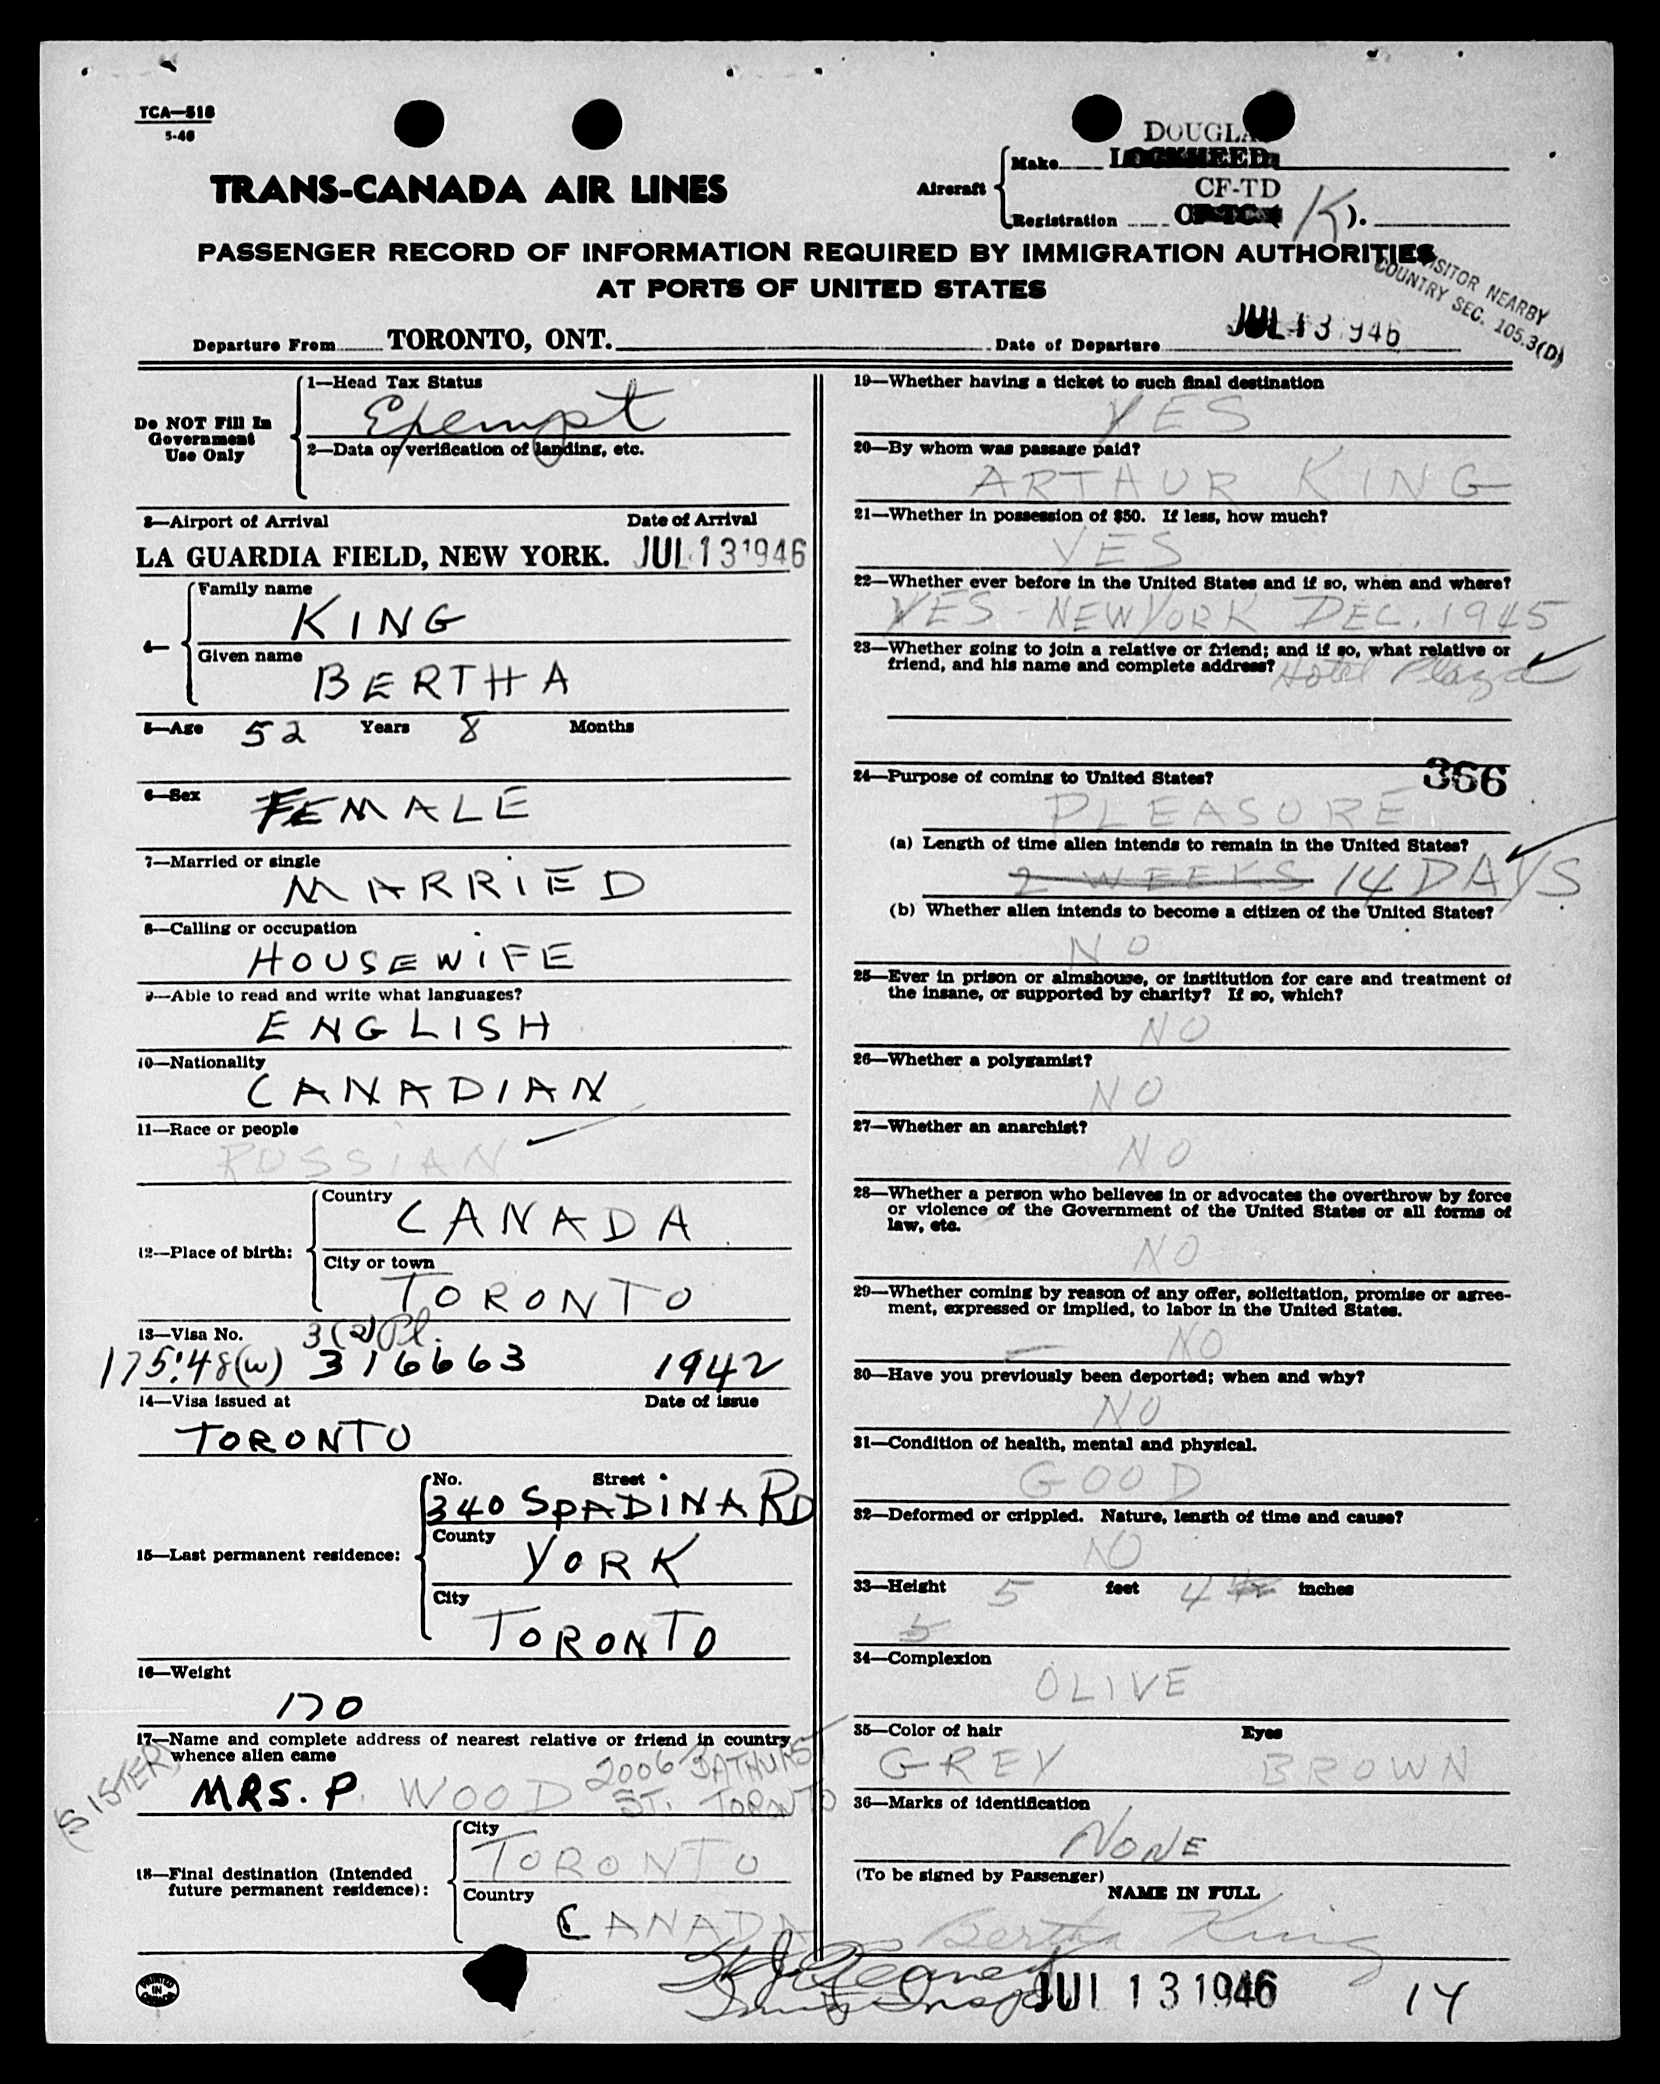 TCA—518
5-46
DOUGLAS
Make LOCKHEED
TRANS-CANADA AIR LINES
Aircraft
CF-TD
Registration CF-TC K ).
PASSENGER RECORD OF INFORMATION REQUIRED BY IMMIGRATION AUTHORITIES
AT PORTS OF UNITED STATES
VISITOR NEARBY
COUNTRY SEC. 105.3(D)
Departure From TORONTO, ONT. Date of Departure JUL 13 1946
Do NOT Fill In
Government
Use Only
1—Head Tax Status
Exempt
2—Data or verification of landing, etc.
3—Airport of Arrival Date of Arrival
LA GUARDIA FIELD, NEW YORK. JUL 13 1946
4—
Family name
KING
Given name
BERTHA
5—Age 52 Years 8 Months
6—Sex FEMALE
7—Married or single
MARRIED
8—Calling or occupation
HOUSEWIFE
9—Able to read and write what languages?
ENGLISH
10—Nationality
CANADIAN
11—Race or people
RUSSIAN
12—Place of birth:
Country CANADA
City or town
TORONTO
13—Visa No. 3(2) Pl.
175.48(w) 316663 1942
14—Visa issued at Date of issue
TORONTO
15—Last permanent residence:
No. Street
340 SPADINA RD
County YORK
City
TORONTO
16—Weight
170
17—Name and complete address of nearest relative or friend in country
whence alien came
(SISTER) MRS. P. WOOD 2006 BATHURST
ST. TORONTO
18—Final destination (Intended
future permanent residence):
City
TORONTO
Country
CANADA
PRINTED
IN
CANADA
19—Whether having a ticket to such final destination
YES
20—By whom was passage paid?
ARTHUR KING
21—Whether in possession of $50. If less, how much?
YES
22—Whether ever before in the United States and if so, when and where?
YES - NEW YORK DEC. 1945
23—Whether going to join a relative or friend; and if so, what relative or
friend, and his name and complete address? Hotel Plaza
366
24—Purpose of coming to United States?
PLEASURE
(a) Length of time alien intends to remain in the United States?
2 WEEKS 14 DAYS
(b) Whether alien intends to become a citizen of the United States?
NO
25—Ever in prison or almshouse, or institution for care and treatment of
the insane, or supported by charity? If so, which?
NO
26—Whether a polygamist?
NO
27—Whether an anarchist?
NO
28—Whether a person who believes in or advocates the overthrow by force
or violence of the Government of the United States or all forms of
law, etc.
NO
29—Whether coming by reason of any offer, solicitation, promise or agree-
ment, expressed or implied, to labor in the United States.
NO
30—Have you previously been deported; when and why?
NO
31—Condition of health, mental and physical.
GOOD
32—Deformed or crippled. Nature, length of time and cause?
NO
33—Height 5 feet 4 inches
5
34—Complexion
OLIVE
35—Color of hair Eyes
GREY BROWN
36—Marks of identification
NONE
(To be signed by Passenger)
NAME IN FULL
Bertha King
JUL 13 1946
14